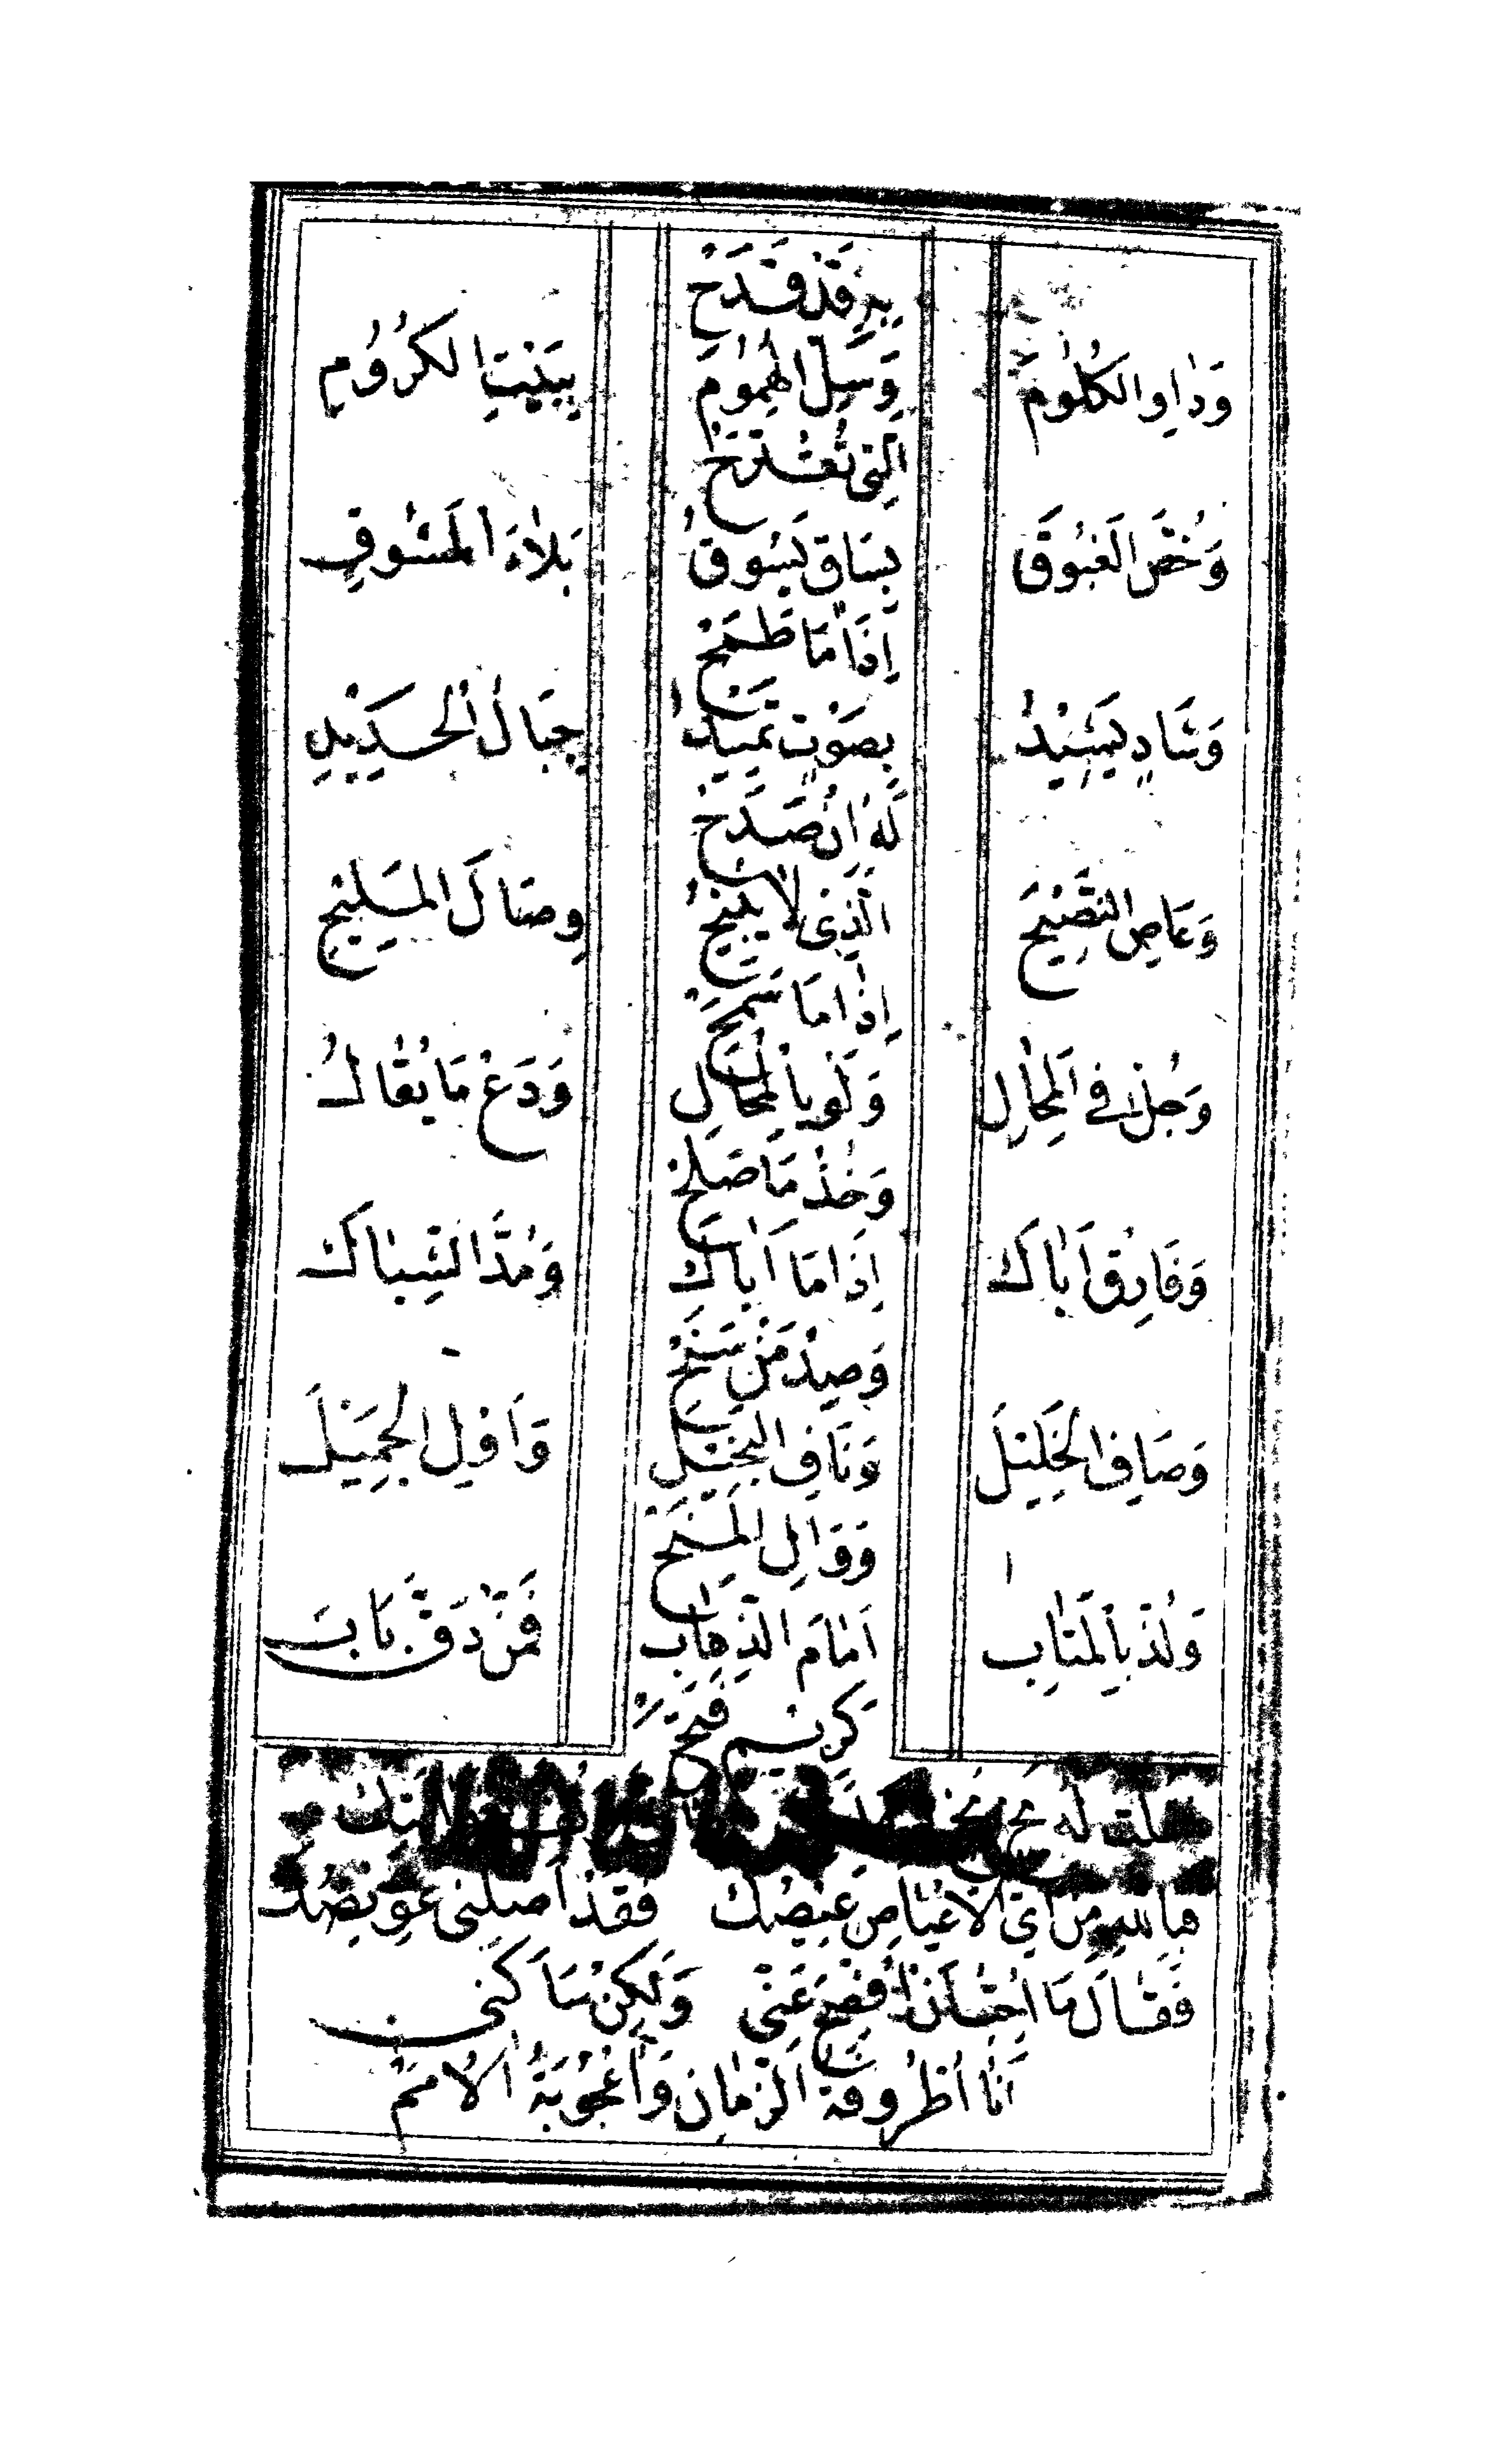 بِهِ قَدْ قَدَحْ
وَدَاوِ الكُلُومَ وَسَلِّ الهُمُومَ بِبِنْتِ الكُرُومِ
الَّتِي تُقْتَرَحْ
وَخُصَّ الغَبُوقَ بِسَاقٍ يَسُوقُ بَلاءَ المَشُوقِ
إِذَا مَا طَمَحْ
وَشَادٍ يُشِيدُ بِصَوْتٍ تَمِيدُ جِبَالُ الحَدِيدِ
لَهُ إِنْ صَدَحْ
وَعَاصِ النَّصِيحَ الَّذِي لا يُبِيحُ وِصَالَ المَلِيحِ
إِذَا مَا سَمَحْ
وَجُلْ فِي المِحَالِ وَلَوْ بِالمُحَالِ وَدَعْ مَا يُقَالُ
وَخُذْ مَا صَلَحْ
وَفَارِقْ أَبَاكَ إِذَا مَا أَبَاكَ وَمُدَّ الشِّبَاكَ
وَصِدْ مَنْ سَنَحْ
وَصَافِ الخَلِيلَ وَنَافِ البَخِيلَ وَأَوْلِ الجَمِيلَ
وَوَالِ المِنَحْ
وَلُذْ بِالمَتَابِ أَمَامَ الذَّهَابِ فَمَنْ دَقَّ بَابَ
كَرِيمٍ فَتَحْ
فقلت له بخ بخ
فبالله من أَيِّ الأَعْيَاصِ عِيصُكَ فَقَدْ أَعْضَلَنِي عَوِيصُكَ
فَقَالَ مَا أُحِبُّ أَنْ أُفْصِحَ عَنِّي وَلَكِنْ سَأَكْنِي
أَنَا أُطْرُوفَةُ الزَّمَانِ وَأُعْجُوبَةُ الأُمَمْ